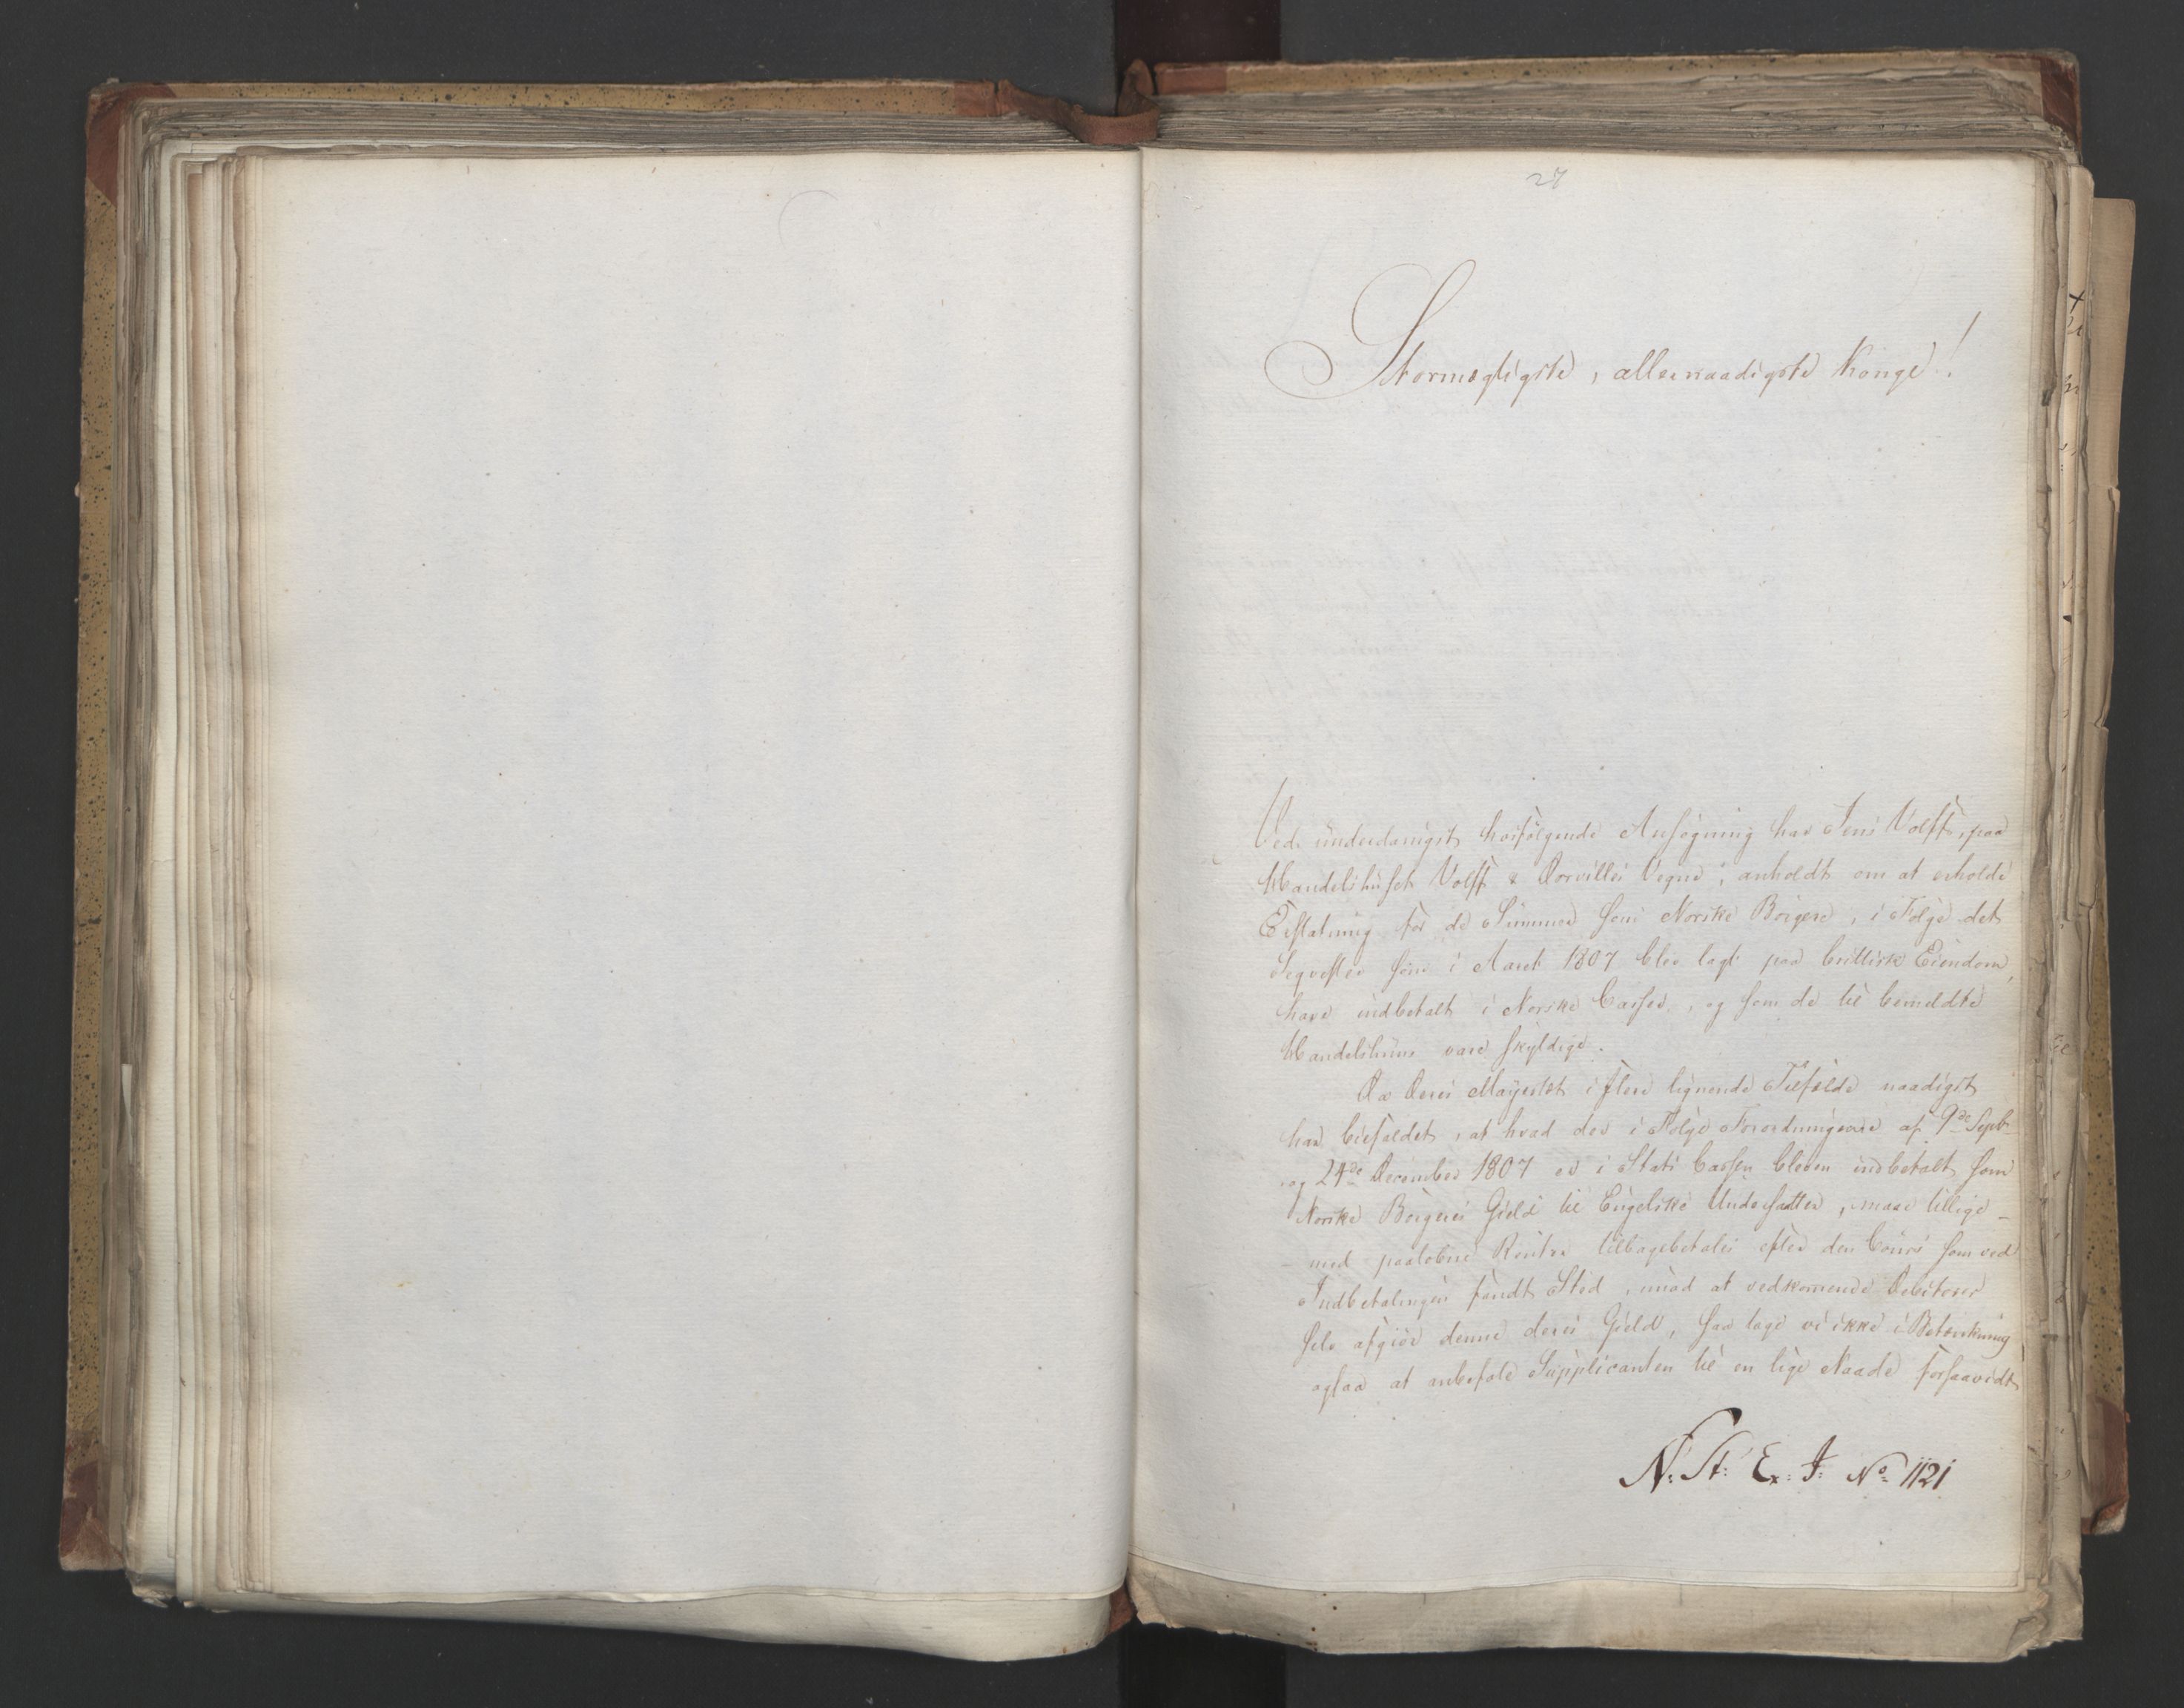 27
Stormægtigste, allernaadigste Konge!
Ved underdanigst hosfølgende Ansøgning har Jens Wolff, paa
Handelshuset Wolff & Dorvilles Vegne, anholdt om at erholde
Erstatning for de Summer som Norske Borgere, i Følge det
Seqvester som i Aaret 1807 blev lagt paa brittisk Eiendom,
have indbetalt i Norske Casser, og som de til bemeldte
Handelshuus vare skyldige.
Da Deres Majestet i flere lignende Tilfælde naadigst
har biefaldet, at hvad der i Følge Forordningerne af 9de Septbr
og 24de December 1807 er i Stats Cassen bleven indbetalt som
Norske Borgeres Gield til Engelske Undersaatter, maae tillige-
med paaløbne Renter tilbagebetales efter den Cours som ved
Indbetalingen fandt Sted, imod at vedkommende Debitorer
selv afgiør denne deres Gield, saa tage vi ikke i Betænkning
ogsaa at anbefale Supplicanten til en lige Naade forsaavidt
N: St: Ex: J: No 1121